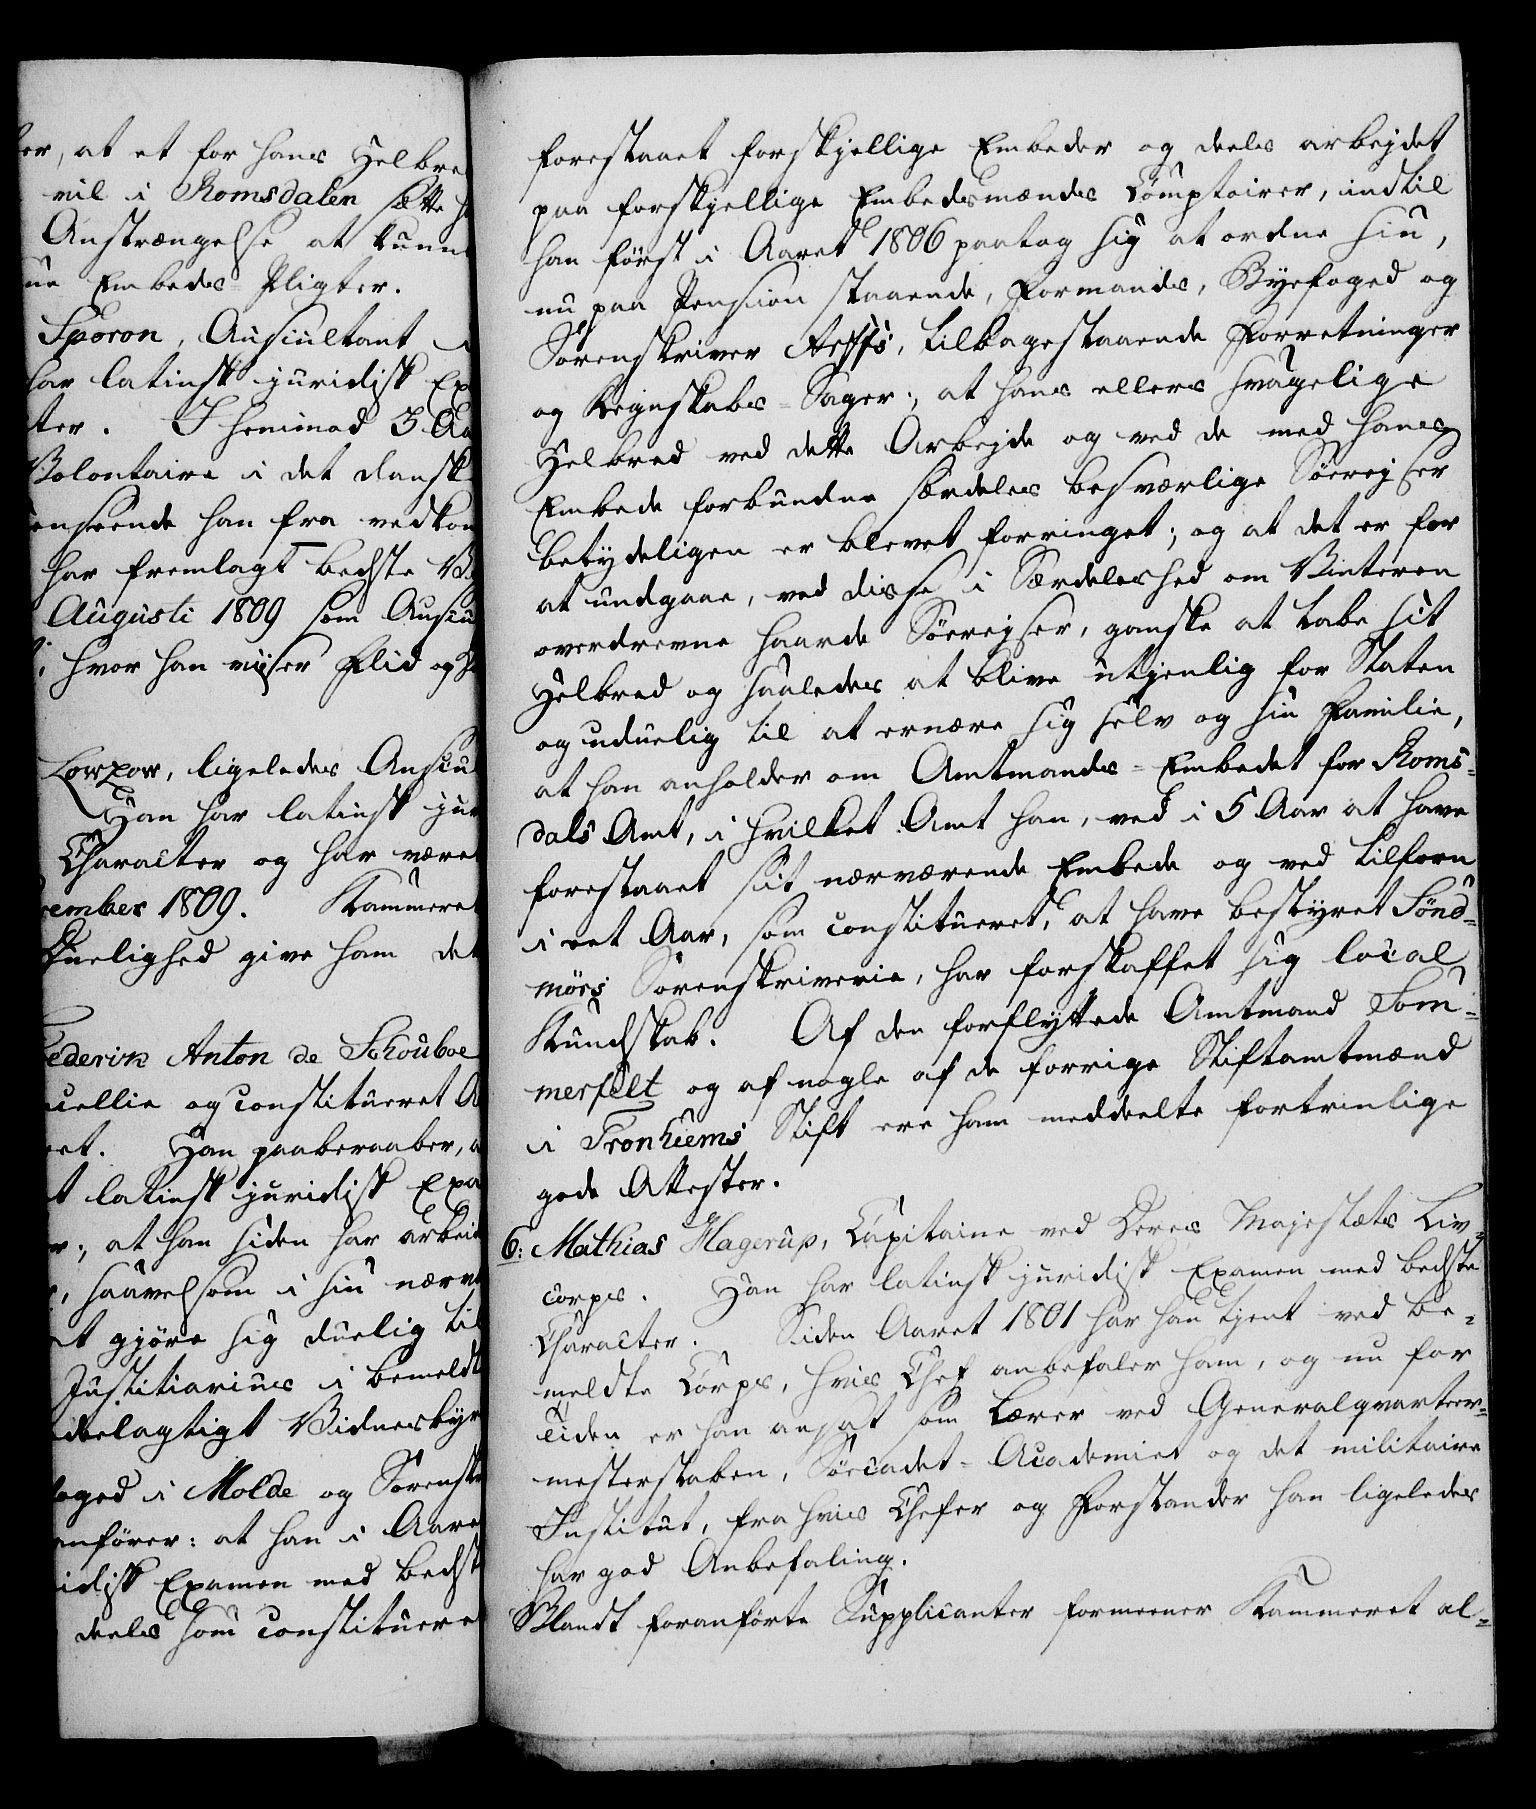 er, at et for hans Helbre
vil i Romsdalen sætte h
Anstrængelse at kunn
ne Embeds-Pligter.
Sporon, Auscultant i
har latinsk juridisk Ex
ter. I henimod 3 Aa
Volontaire i det dansk
enseende han fra vedkom
har fremlagt bedste V
Augusti 1809 som Auscu
i, hvor han viiser Flid og
Lowzow, ligeledes Auscu
Han har latinsk jur
Character og har været
cember 1809. Kammeret
Duelighed give ham det
ederik Anton de Schouboe
cellie og constitueret A
et. Han paaberaaber, a
t latinsk juridisk Exa
r, at han siden har arbeid
, saavelsom i sin nærv
t gjöre sig duelig til
Justitiarius i bemeldt
delagtigt Vidnesbyr
oged i Molde og Sorensk
nförer: at han i Aare
idisk Examen med bedst
deels som constituere
forestaaet forskjellige Embeder og deels arbejdet
paa forskjellige Embedsmænds Comptoirer, indtil
han först i Aaret 1806 paatog sig at ordne sin,
nu paa Pension staaende, Formands, Byefoged og
Sorenskriver Aeffs, tilbagestaaende Forretninger
og Regnskabs-Sager; at hans ellers svagelige
Helbred ved dette Arbejde og ved de med hans
Embede forbundne særdeles besværlige Söerejser
betydeligen er blevet forringet; og at det er for
at undgaae, ved disse i Særdeleshed om Vinteren
overdrevne haarde Söerejser, ganske at tabe sit
Helbred og saaledes at blive utjenlig for Staten
og uduelig til at ernære sig selv og sin Familie,
at han anholder om Amtmands-Embedet for Roms-
dals Amt, i hvilket Amt han, ved i 5 Aar at have
forestaaet sit nærværende Embede og ved tilforn
i eet Aar, som constitueret, at have bestyret Sönd-
mörs Sorenskriverie, har forskaffet sig local
Kundskab. Af den forflyttede Amtmand Som-
merfelt og af nogle af de forrige Stiftamtmænd
i Tronhiems Stift ere ham meddeelte fortrinlige
gode Attester.
6: Mathias Hagerup, Capitaine ved Deres Majestæts Liv-
corps. Han har latinsk juridisk Examen med bedste
Character. Siden Aaret 1801 har han tjent ved be-
meldte Corps, hvis Chef anbefaler ham, og nu for
tiden er han ansat som Lærer ved Generalqvarteer-
mesterstaben, Söecadet-Academiet og det militaire
Institut, fra hvis Chefer og Forstander han ligeledes
har god Anbefaling.
Blandt foranförte Supplicanter formeener Kammeret al-